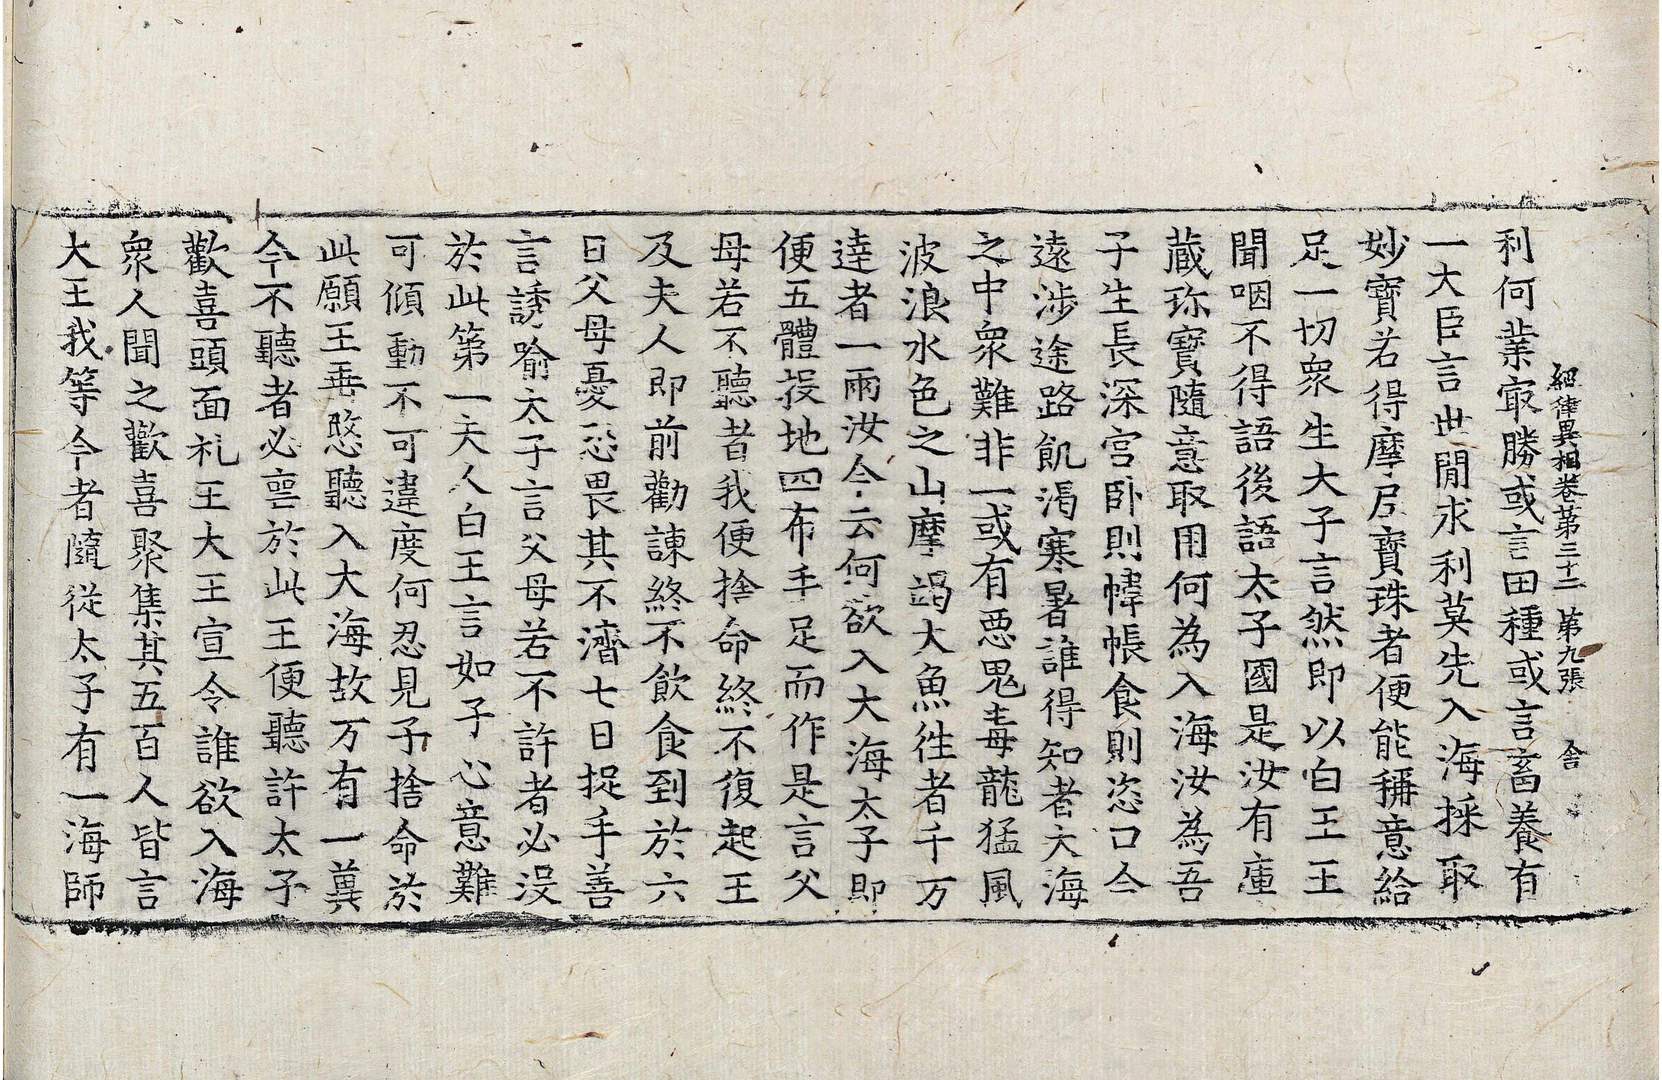 經律異相卷第三十二 第九張 舍
利何業㝡勝或言田種或言畜養有
一大臣言世間求利莫先入海採取
妙寶若得摩尼寶珠者便能稱意給
足一切衆生大子言然即以白王王
聞咽不得語後語太子國是汝有庫
藏珎寶隨意取用何為入海汝為吾
子生長深宮卧則幃帳食則恣口今
遠涉途路飢渴寒暑誰得知者大海
之中衆難非一或有惡鬼毒龍猛風
波浪水色之山摩竭大魚徃者千万
達者一兩汝今云何欲入大海太子即
便五體投地四布手足而作是言父
母若不聽者我便捨命終不復起王
及夫人即前勸諫終不飲食到於六
日父母憂恐畏其不濟七日捉手善
言誘喻太子言父母若不許者必沒
於此第一夫人白王言如子心意難
可傾動不可違度何忍見子捨命於
此願王垂愍聽入大海故万有一冀
今不聽者必喪於此王便聽許太子
歡喜頭面礼王大王宣令誰欲入海
衆人聞之歡喜聚集其五百人皆言
大王我等今者隨從太子有一海師